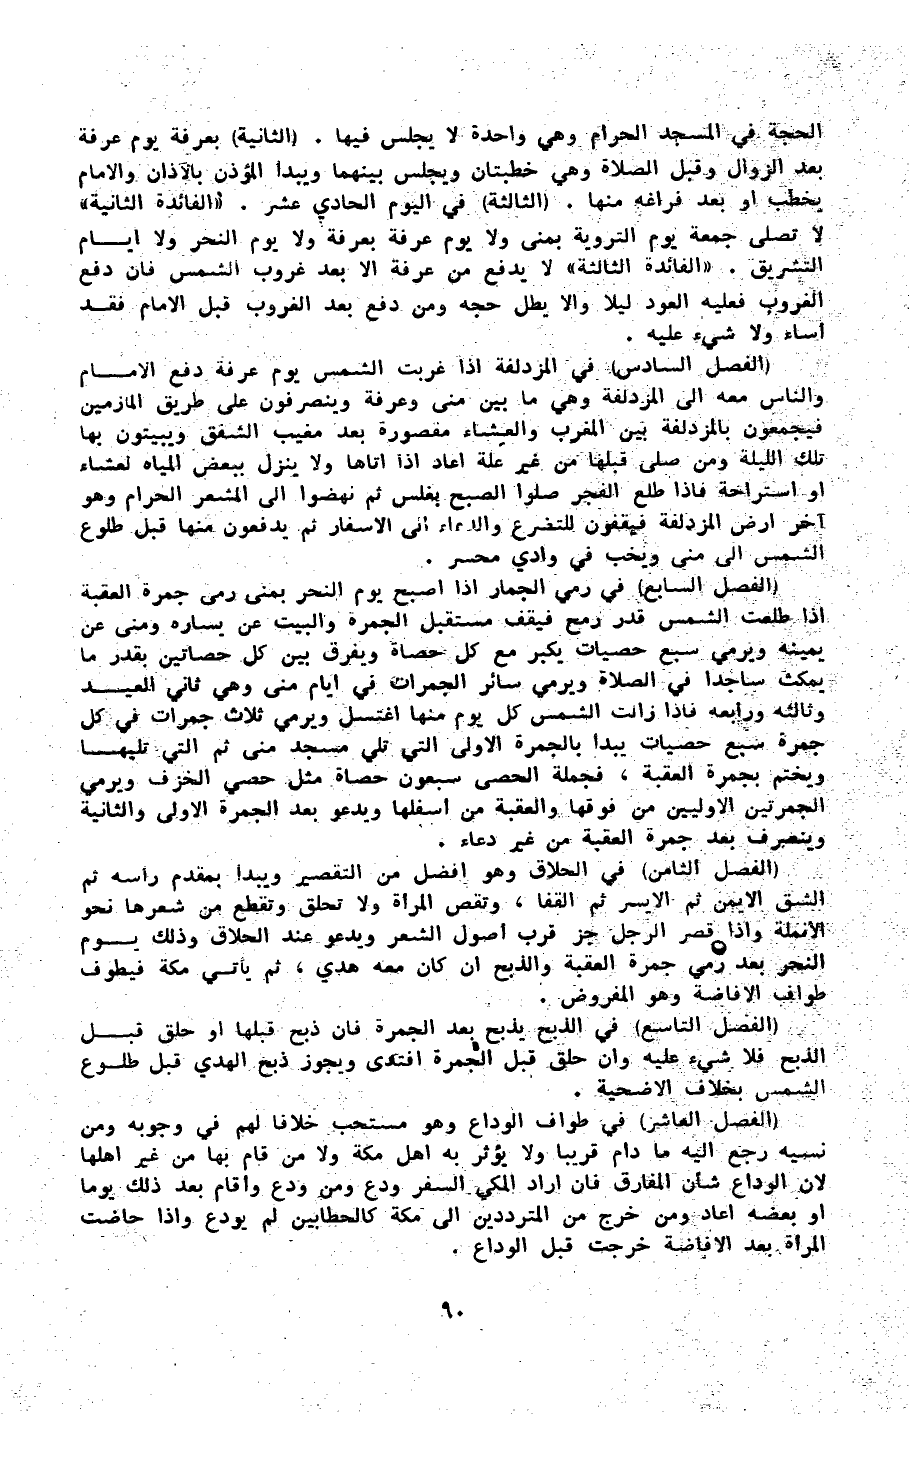 الحجة في المسجد الحرام وهي واحدة لا يجلس فيها . (الثانية) بعرفة يوم عرفة
بعد الزوال وقبل الصلاة وهي خطبتان ويجلس بينهما ويبدأ المؤذن بالآذان والامام
يخطب او بعد فراغه منها . (الثالثة) في اليوم الحادي عشر . «الفائدة الثانية»
لا تصلى جمعة يوم التروية بمنى ولا يوم عرفة بعرفة ولا يوم النحر ولا ايـــام
التشريق . «الفائدة الثالثة» لا يدفع من عرفة الا بعد غروب الشمس فان دفع
الغروب فعليه العود ليلا والا بطل حجه ومن دفع بعد الغروب قبل الامام فقـد
أساء ولا شيء عليه .
(الفصل السادس) في المزدلفة اذا غربت الشمس يوم عرفة دفع الامـــام
والناس معه الى المزدلفة وهي ما بين منى وعرفة وينصرفون على طريق المازمين
فيجمعون بالمزدلفة بين المغرب والعشاء مقصورة بعد مغيب الشفق ويبيتون بها
تلك الليلة ومن صلى قبلها من غير علة اعاد اذا اتاها ولا ينزل ببعض المياه لعشاء
او استراحة فاذا طلع الفجر صلوا الصبح بغلس ثم نهضوا الى المشعر الحرام وهو
آخر ارض المزدلفة فيقفون للتضرع والدعاء الى الاسفار ثم يدفعون منها قبل طلوع
الشمس الى منى ويخب في وادي محسر .
(الفصل السابع) في رمي الجمار اذا اصبح يوم النحر بمنى رمى جمرة العقبة
اذا طلعت الشمس قدر رمح فيقف مستقبل الجمرة والبيت عن يساره ومنى عن
يمينه ويرمي سبع حصيات يكبر مع كل حصاة ويفرق بين كل حصاتين بقدر ما
يمكث ساجدا في الصلاة ويرمي سائر الجمرات في ايام منى وهي ثاني العيـــد
وثالثه ورابعه فاذا زالت الشمس كل يوم منها اغتسل ويرمي ثلاث جمرات في كل
جمرة سبع حصيات يبدأ بالجمرة الاولى التي تلي مسجد منى ثم التي تليهـــا
ويختم بجمرة العقبة ، فجملة الحصى سبعون حصاة مثل حصي الخزف ويرمي
الجمرتين الاوليين من فوقها والعقبة من اسفلها ويدعو بعد الجمرة الاولى والثانية
وينصرف بعد جمرة العقبة من غير دعاء .
(الفصل الثامن) في الحلاق وهو افضل من التقصير ويبدأ بمقدم رأسه ثم
الشق الايمن ثم الايسر ثم القفا ، وتقص المرأة ولا تحلق وتقطع من شعرها نحو
الانملة واذا قصر الرجل جز قرب اصول الشعر ويدعو عند الحلاق وذلك يـــوم
النحر بعد رمي جمرة العقبة والذبح ان كان معه هدي ، ثم يأتـي مكة فيطوف
طواف الافاضة وهو المفروض .
(الفصل التاسع) في الذبح يذبح بعد الجمرة فان ذبح قبلها او حلق قبـــل
الذبح فلا شيء عليه وان حلق قبل الجمرة افتدى ويجوز ذبح الهدي قبل طلـوع
الشمس بخلاف الاضحية .
(الفصل العاشر) في طواف الوداع وهو مستحب خلافا لهم في وجوبه ومن
نسيه رجع اليه ما دام قريبا ولا يؤثر به اهل مكة ولا من قام بها من غير اهلها
لان الوداع شأن المفارق فان اراد المكي السفر ودع ومن ودع وأقام بعد ذلك يوما
او بعضه اعاد ومن خرج من المترددين الى مكة كالحطابين لم يودع واذا حاضت
المرأة بعد الافاضة خرجت قبل الوداع .
٩٠